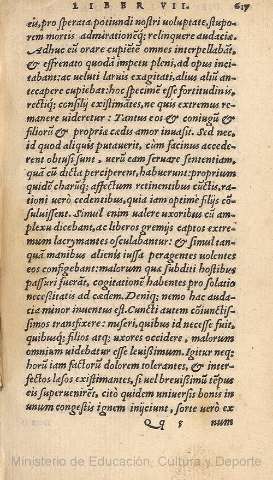 LIBER VII. 617
eũ, pro sperata potiundi nostri voluptate, stupo-
rem mortis admirationéq; relinquere audaciæ.
Adhuc eũ orare cupiẽtẽ omnes interpellabãt,
& effrenato quodã impetu pleni, ad opus inci-
tabant: ac veluti laruis exagitati, alius aliũ an-
tecapere cupiebat: hoc specimẽ esse fortitudinis,
rectiq; consilij existimãtes, ne quis extremus re-
manere videretur: Tantus eos & coniugũ &
filiorũ & propriæ cædis amor inuasit. Sed nec,
id quod aliquis putauerit, cùm facinus accede-
rent obtusi sunt, verũ eam seruare sententiam,
quã cũ dicta perciperent, habuerunt: proprium
quidẽ charũq; affectum retinentibus cũctis, ra-
tioni verò cedentibus, quia iam optimè filijs cõ-
suluissent. Simul enim valere vxoribus cũ am-
plexu dicebant, ac liberos gremijs captos extre-
mum lacrymantes osculabantur: & simul tan-
quã manibus alienis iussa peragentes volentes
eos configebant: malorum quæ subditi hostibus
passuri fuerãt, cogitationẽ habentes pro solatio
necessitatis ad cædem. Deniq; nemo hac auda-
cia minor inuentus est. Cũcti autem cõiunctis-
simos transfixere: miseri, quibus id necesse fuit,
quibusq; filios atq; vxores occidere, malorum
omnium videbatur esse leuissimum. Igitur neq;
horũ iam factorũ dolorem tolerantes, & inter-
fectos læsos existimantes, si vel breuissimũ tẽpus
eis superuiuerẽt, citò quidem vniuersis bonis in
vnum congestis ignem inijciunt, sorte verò ex
Qq 5 num
Ministerio de Educación, Cultura y Deporte